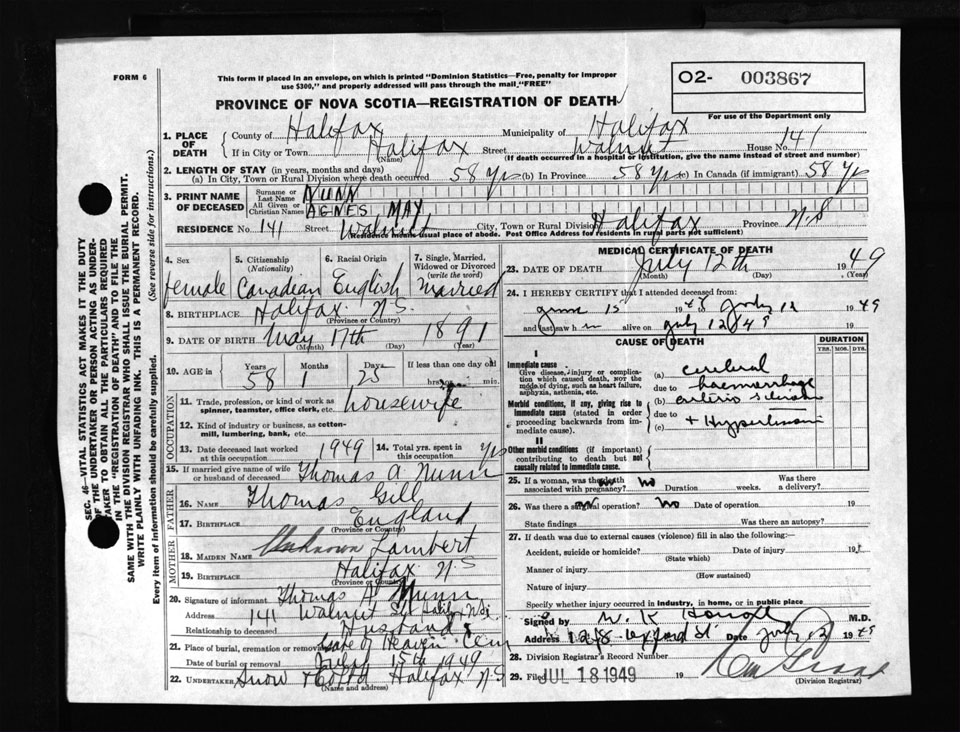 FORM 6
This form if placed in an envelope, on which is printed "Dominion Statistics—Free, penalty for improper
use $300," and properly addressed will pass through the mail "FREE"
O2- 003867
For use of the Department only
PROVINCE OF NOVA SCOTIA—REGISTRATION OF DEATH
1. PLACE OF DEATH
County of Halifax Municipality of Halifax
If in City or Town Halifax (Name) Street Walnut House No. 141
(If death occurred in a hospital or institution, give the name instead of street and number)
2. LENGTH OF STAY (in years, months and days)
(a) In City, Town or Rural Division where death occurred 58 Yrs (b) In Province 58 Yrs (c) In Canada (if immigrant) 58 Yrs
3. PRINT NAME OF DECEASED
Surname or Last Name NUNN
All Given or Christian Names AGNES MAY
RESIDENCE No. 141 Street Walnut City, Town or Rural Division Halifax Province N.S
(Residence means usual place of abode. Post Office Address for residents in rural parts not sufficient)
4. Sex 5. Citizenship (Nationality) 6. Racial Origin 7. Single, Married, Widowed or Divorced (write the word)
female Canadian English Married
8. BIRTHPLACE Halifax N.S.
(Province or Country)
9. DATE OF BIRTH May 17th 1891
(Month) (Day) (Year)
10. AGE in Years 58 Months 1 Days 25 If less than one day old hrs. or min.
OCCUPATION
11. Trade, profession or kind of work as spinner, teamster, office clerk, etc. housewife
12. Kind of industry or business, as cotton-mill, lumbering, bank, etc.
13. Date deceased last worked at this occupation 1949 14. Total yrs. spent in this occupation Yrs
15. If married give name of wife or husband of deceased Thomas A Nunn
FATHER
16. NAME Thomas Gill
17. BIRTHPLACE England
(Province or Country)
MOTHER
18. MAIDEN NAME Unknown Lambert
19. BIRTHPLACE Halifax N S
(Province or Country)
20. Signature of informant Thomas A Nunn
Address 141 Walnut St Halifax N.S.
Relationship to deceased Husband
21. Place of burial, cremation or removal Gate of Heaven Cem
Date of burial or removal July 15th 1949
22. UNDERTAKER Snow & Co Ltd Halifax N S
(Name and address)
MEDICAL CERTIFICATE OF DEATH
23. DATE OF DEATH July 12th 1949
(Month) (Day)
24. I HEREBY CERTIFY that I attended deceased from:
June 15 to July 12 1949
and last saw h alive on July 12 1949 19
CAUSE OF DEATH
DURATION
YRS. MOS. DYS.
I
Immediate cause
Give disease, injury or complication which caused death, not the mode of dying, such as heart failure, asphyxia, asthenia, etc.
Morbid conditions, if any, giving rise to immediate cause (stated in order proceeding backwards from immediate cause)
II
Other morbid conditions (if important) contributing to death but not causally related to immediate cause.
(a) cerebral
due to haemorrhage
(b) arterio sclerosis
due to
(c) + Hypertension
25. If a woman, was the death associated with pregnancy? no Duration weeks. Was there a delivery?
26. Was there a surgical operation? No Date of operation 19
State findings Was there an autopsy?
27. If death was due to external causes (violence) fill in also the following:—
Accident, suicide or homicide? Date of injury 19
(State which)
Manner of injury
(How sustained)
Nature of injury
Specify whether injury occurred in industry, in home, or in public place
Signed by W. K. M.D.
Address 128 Oxford St. Date July 12 1949
28. Division Registrar's Record Number
29. Filed JUL 18 1949 19
(Division Registrar)
SEC. 46—VITAL STATISTICS ACT MAKES IT THE DUTY
OF THE UNDERTAKER OR PERSON ACTING AS UNDER-
TAKER TO OBTAIN ALL THE PARTICULARS REQUIRED
IN THE "REGISTRATION OF DEATH" AND TO FILE THE
SAME WITH THE DIVISION REGISTRAR WHO SHALL ISSUE THE BURIAL PERMIT.
WRITE PLAINLY WITH UNFADING INK. THIS IS A PERMANENT RECORD.
Every item of information should be carefully supplied. (See reverse side for instructions.)